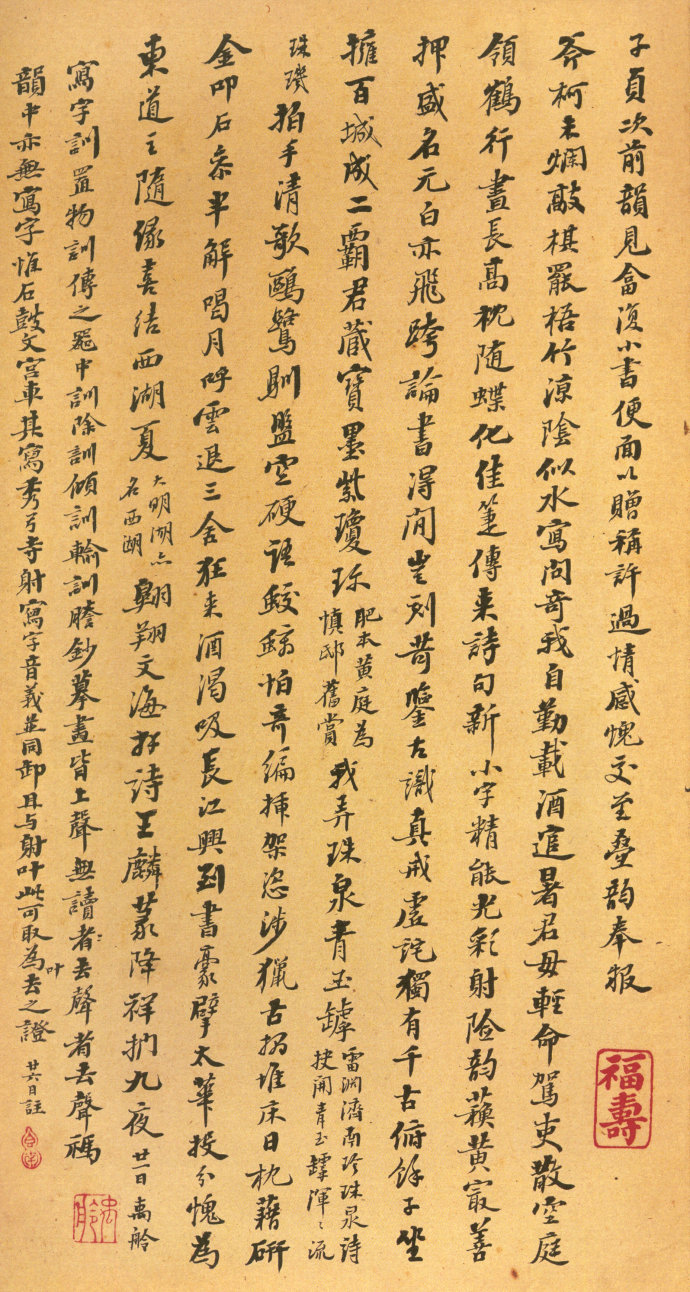 子貞次前韻見畣復小書便面以贈稱許過情感愧交至疊韵奉报
斧柯未爛敲棋罷梧竹涼陰似水寫問奇我自勤載酒逭暑君毋輕命駕吏散空庭
領鶴行晝長高枕随蝶化佳箑傳来詩句新小字精能光彩射险韵蘓黄寂善
押盛名元白亦飛跨論書得間豈刻苛鑒古識真戒虚詫獨有千古俯餘子坐
擁百城成二霸君藏寶墨紫瓊珎肥本黄庭為慎邸舊賞我弄珠泉青玉罅雷渊濟南珍珠泉詩抉開青玉罅渾渾流
珠璣拍手清歌鷗鷺馴盤空硬語鮫鱷怕奇編插架恣涉獵古搨堆床日枕藉研
金叩石叅半解喝月呼雲退三舍狂来酒渴吸長江興到書豪擘太華投分愧為
東道主隨緣喜结西湖夏大明湖亦名西湖翱翔文海拜詩王麟篆降祥捫九夜廿一日禹舲
寫字訓置物訓傳之器中訓除訓傾訓輸訓謄鈔摹畫皆上聲無讀去聲者去聲禡
韻中亦無寫字惟石鼓文宫車其寫秀弓寺射寫字音義並同卸且与射叶此可取為叶去之證廿六日註
福壽